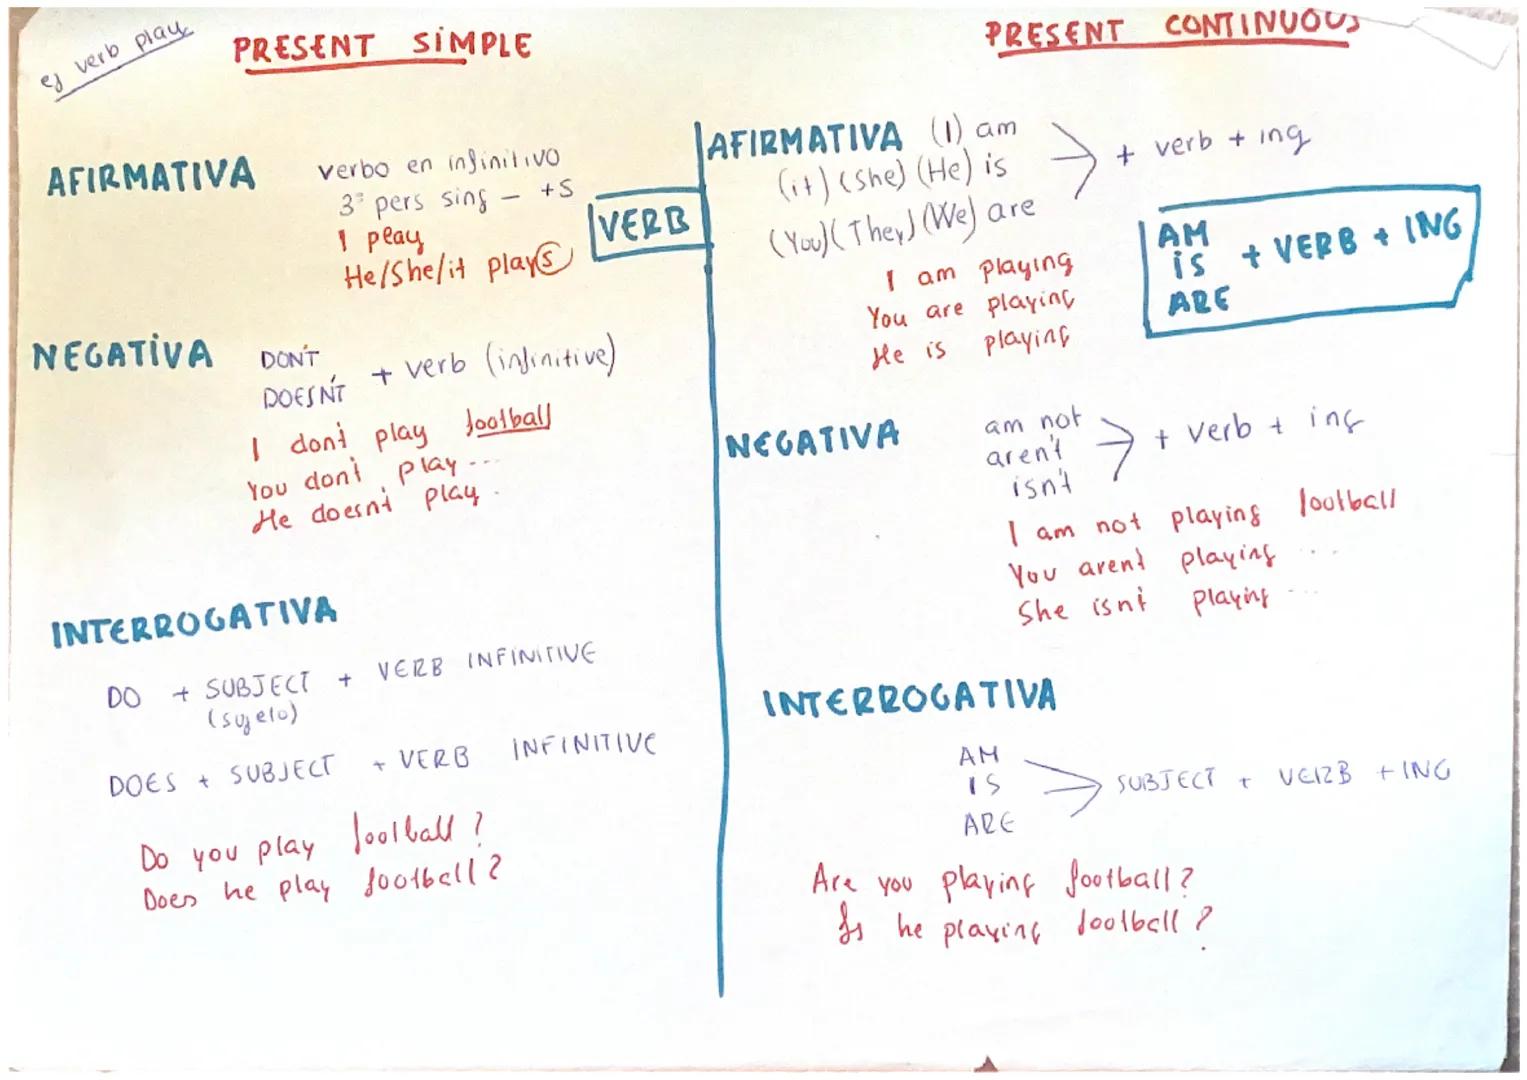 ej verb play
PRESENT SIMPLE
AFIRMATIVA
verbo en infinitivo
3ª pers sing – +S
I play
He/She/it plays
VERB
NEGATIVA
DON'T
DOESN'T
+ verb (infinitive)
I don't play football
You don't play ...
He doesn't play.
INTERROGATIVA
DO + SUBJECT + VERB INFINITIVE
(sujeto)
DOES + SUBJECT + VERB INFINITIVE
Do you play football?
Does he play football?
PRESENT CONTINUOUS
AFIRMATIVA (I) am
(it) (she) (He) is
(You) (They) (We) are
+ verb + ing
I am playing
You are playing
He is playing
AM
IS
ARE
+ VERB + ING
NEGATIVA
am not
aren't
isn't
+ verb + ing
I am not playing football
You aren't playing ...
She isn't playing ...
INTERROGATIVA
AM
IS
ARE
SUBJECT + VERB + ING
Are you playing football?
Is he playing football?